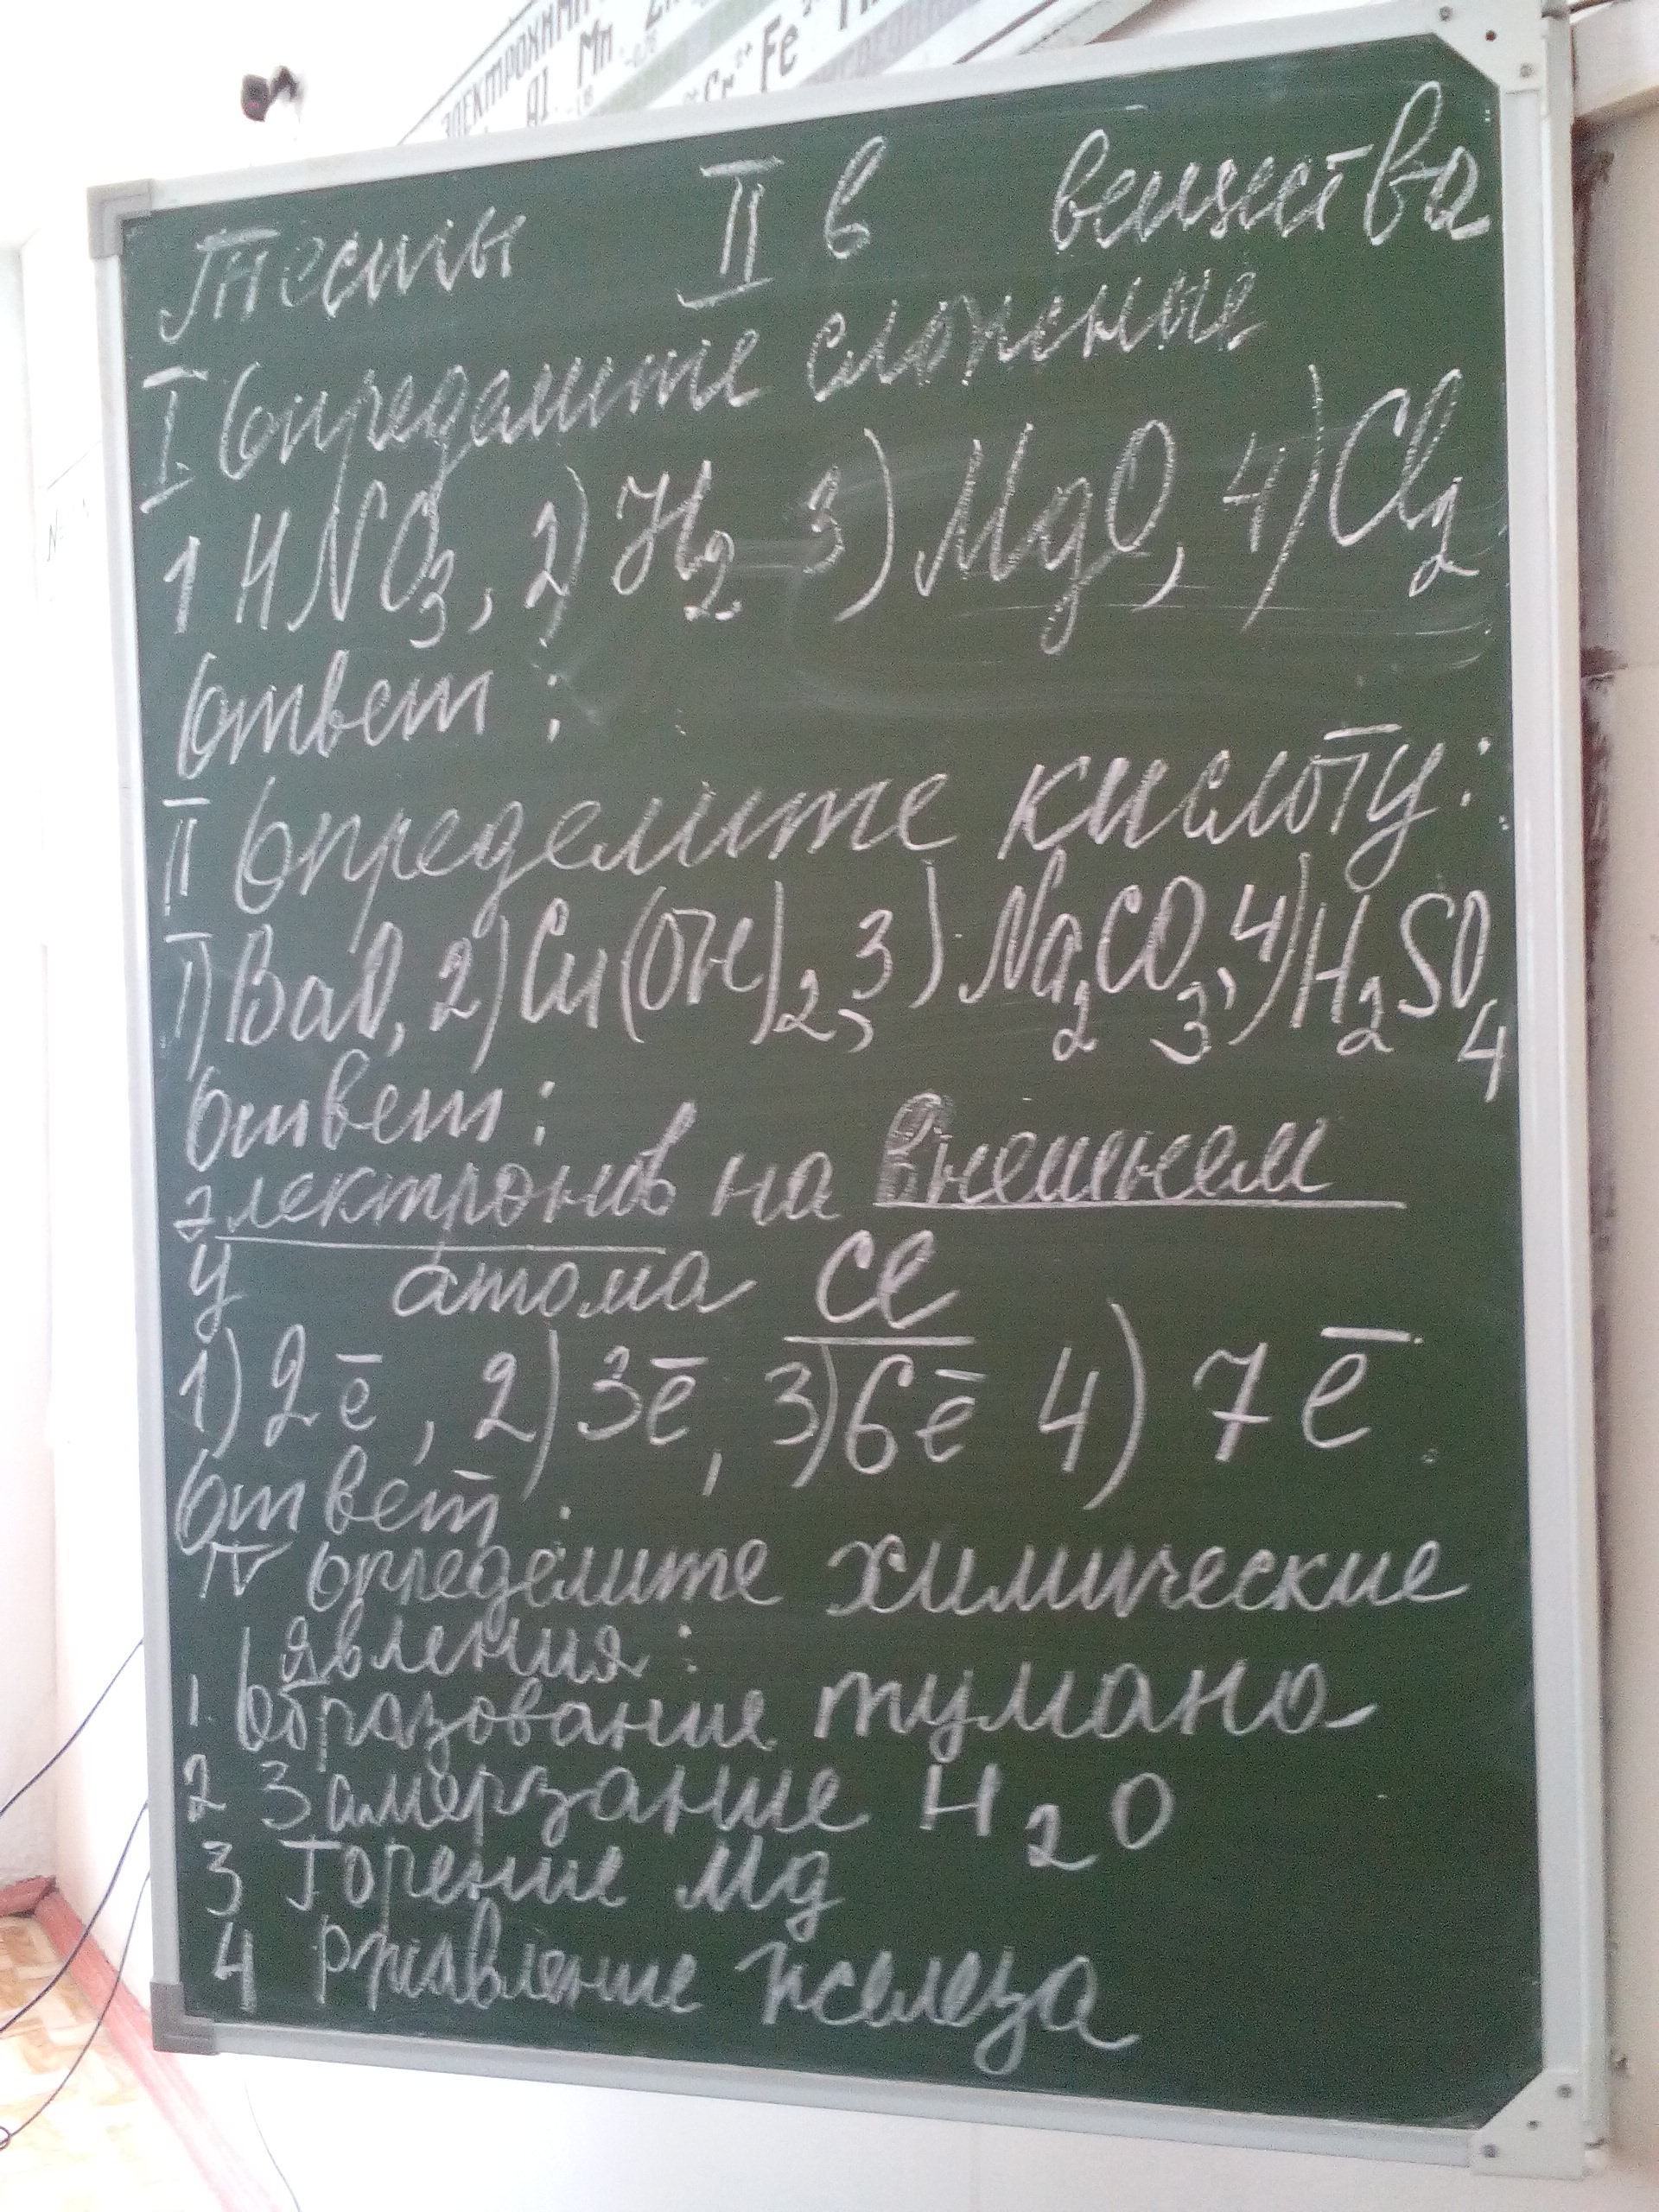 ЭЛЕКТРОХИМИ
Al Mn Zn
Cr Fe
Тесты II в вещества
I. Определите сложные
1 HNO3, 2) H2 3) MgO, 4) Cl2
Ответ:
II Определите кислоту:
1) BaO, 2) Cu(OH)2, 3) Na2CO3, 4) H2SO4
Ответ:
Электронов на внешнем
у атома Cl
1) 2ē, 2) 3ē, 3) 6ē 4) 7ē
Ответ:
IV Определите химические
явления:
1. Образование тумана
2 Замерзание H2O
3 Горение Mg
4 Ржавление железа